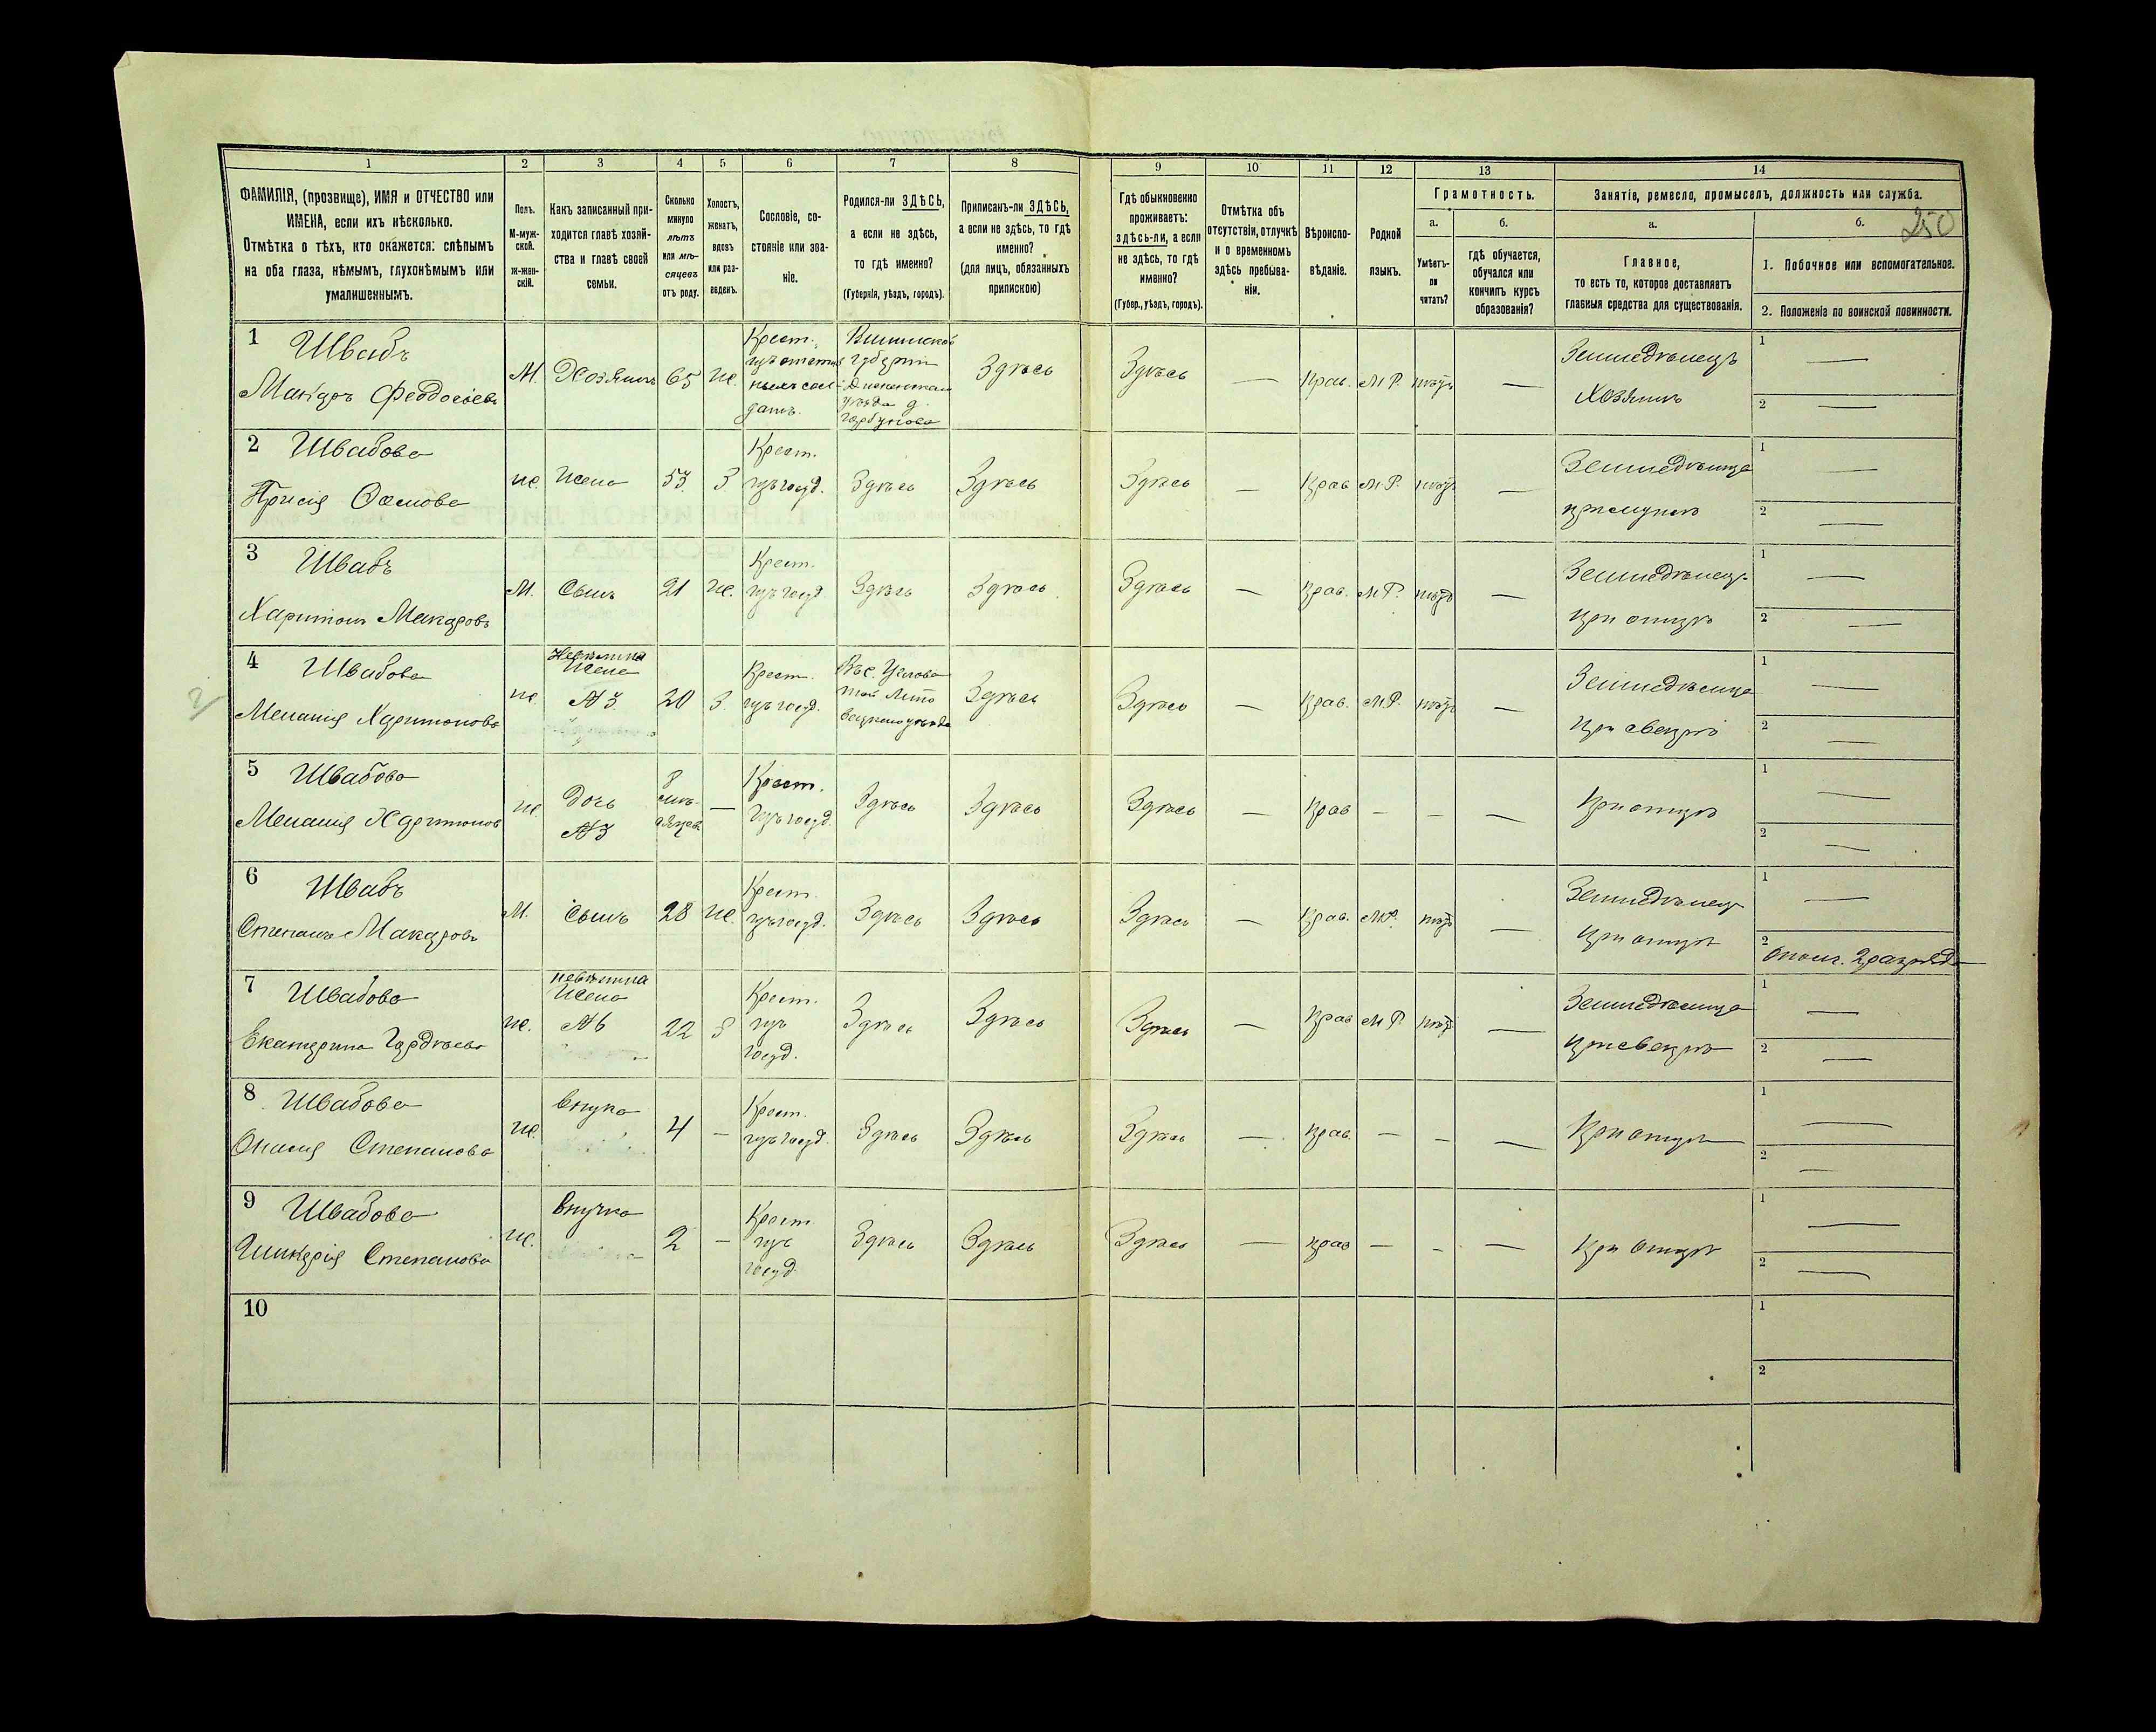 1 2 3 4 5 6 7 8 9 10 11 12 13 14
ФАМИЛІЯ, (прозвище), ИМЯ и ОТЧЕСТВО или
ИМЕНА, если ихъ нѣсколько.
Отмѣтка о тѣхъ, кто окажется: слѣпымъ
на оба глаза, нѣмымъ, глухонѣмымъ или
умалишеннымъ.
Полъ.
М-муж-
ской.
ж-жен-
скій.
Какъ записанный при-
ходится главѣ хозяй-
ства и главѣ своей
семьи.
Сколько
минуло
лѣтъ
или мѣ-
сяцевъ
отъ роду.
Холостъ,
женатъ,
вдовъ
или раз-
веденъ.
Сословіе, со-
стояніе или зва-
ніе.
Родился-ли ЗДѢСЬ,
а если не здѣсь,
то гдѣ именно?
(Губернія, уѣздъ, городъ).
Приписанъ-ли ЗДѢСЬ,
а если не здѣсь, то гдѣ
именно?
(для лицъ, обязанныхъ
припискою)
Гдѣ обыкновенно
проживаетъ:
здѣсь-ли, а если
не здѣсь, то гдѣ
именно?
(Губер., уѣздъ, городъ).
Отмѣтка объ
отсутствіи, отлучкѣ
и о временномъ
здѣсь пребыва-
ніи.
Вѣроиспо-
вѣданіе.
Родной
языкъ.
Грамотность.
а. б.
Умѣетъ-
ли
читать?
гдѣ обучается,
обучался или
кончилъ курсъ
образованія?
Занятіе, ремесло, промыселъ, должность или служба.
а. б. 250
Главное,
то есть то, которое доставляетъ
главныя средства для существованія.
1. Побочное или вспомогательное.
2. Положеніе по воинской повинности.
1 Швабъ
Макаръ Феодосіевъ
М. Хозяинъ 65 же.
Крест.
губерніи
уѣзда д.
Здѣсь Здѣсь — Прав. М.Р. нѣтъ —
Земледѣлецъ
Хозяинъ
1 —
2 —
2 Швабова
же. жена 53 З
Крест.
изъ госуд.
Здѣсь Здѣсь Здѣсь — Прав М.Р. нѣтъ —
Земледѣлица
при мужѣ
1 —
2 —
3 Швабъ
Харитонъ Макаровъ
М. Сынъ 21 же.
Крест.
изъ госуд
Здѣсь Здѣсь Здѣсь — Прав. М.Р. нѣтъ —
Земледѣлецъ
при отцѣ
1 —
2 —
4 Швабова
Меланія Харитонова
же. Невѣстка
Жена
№3 20 З
Крест.
изъ госуд.
уѣзда
Здѣсь Здѣсь — Прав. М.Р. нѣтъ —
Земледѣлица
при свекрѣ
1 —
2 —
5 Швабова
Меланія Харитонов
же Дочь
№3
8
мѣ-
сяцевъ —
Крест.
изъ госуд.
Здѣсь Здѣсь Здѣсь — Прав — — —
При отцѣ
1 —
2 —
6 Швабъ
Степанъ Макаровъ
М. Сынъ 28 же.
Крест.
изъ госуд.
Здѣсь Здѣсь Здѣсь — Прав. М.Р. нѣтъ —
Земледѣлецъ
при отцѣ
1 —
2 Ополч. 2 разряда
7 Швабова
Екатерина Гордѣева
же. невѣстка
Жена
№6 22 З
Крест.
изъ
госуд.
Здѣсь Здѣсь Здѣсь — Прав М.Р. нѣтъ —
Земледѣлица
при свекрѣ
1 —
2 —
8 Швабова
Степанова
же. внука 4 —
Крест.
изъ госуд.
Здѣсь Здѣсь Здѣсь — Прав. — — —
При отцѣ
1 —
2 —
9 Швабова
Гликерія Степанова
же. внучка 2 —
Крест
изъ
госуд
Здѣсь Здѣсь Здѣсь — прав — — —
При отцѣ
1 —
2 —
10
1
2